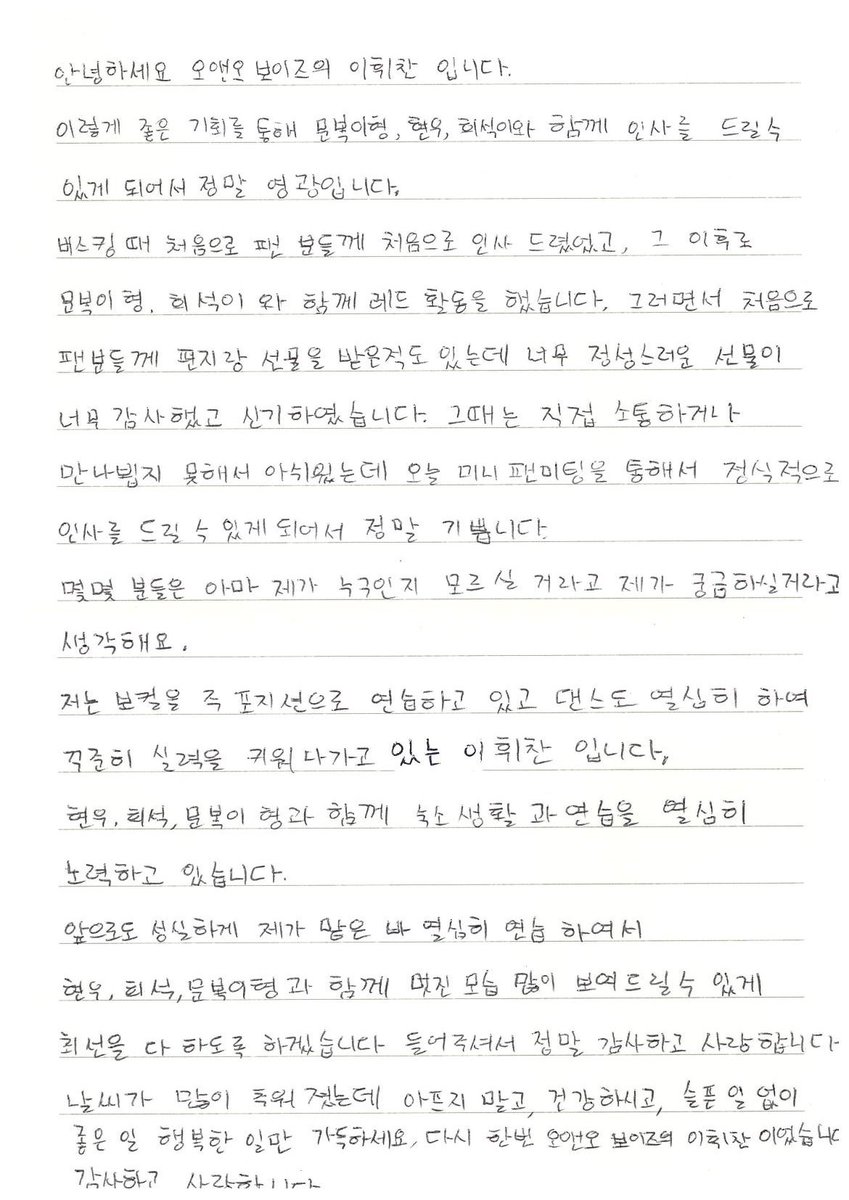 안녕하세요 오앤오보이즈의 이휘찬 입니다.
이렇게 좋은 기회를 통해 문복이형, 현우, 희석이와 함께 인사를 드릴수
있게 되어서 정말 영광입니다.
버스킹 때 처음으로 팬 분들께 처음으로 인사 드렸었고, 그 이후로
문복이형, 희석이 와 함께 레드 활동을 했습니다. 그러면서 처음으로
팬분들께 편지랑 선물을 받은적도 있는데 너무 정성스러운 선물이
너무 감사했고 신기하였습니다. 그때는 직접 소통하거나
만나뵙지 못해서 아쉬웠는데 오늘 미니팬미팅을 통해서 정식적으로
인사를 드릴 수 있게되어서 정말 기쁩니다.
몇몇 분들은 아마 제가 누구인지 모르실 거라고 제가 궁금하실거라고
생각해요.
저는 보컬을 즉 포지션으로 연습하고 있고 댄스도 열심히 하여
꾸준히 실력을 키워나가고 있는 이휘찬 입니다.
현우, 희석, 문복이 형과 함께 숙소생활 과 연습을 열심히
노력하고 있습니다.
앞으로도 성실하게 제가 맡은 바 열심히 연습 하여서
현우, 희석, 문복이형과 함께 멋진 모습 많이 보여드릴수 있게
최선을 다 하도록 하겠습니다 들어주셔서 정말 감사하고 사랑합니다
날씨가 많이 추워 졌는데 아프지 말고, 건강하시고, 슬픈일 없이
좋은 일 행복한 일만 가득하세요, 다시 한번 오앤오 보이즈의 이휘찬 이었습니다
감사하고 사랑합니다